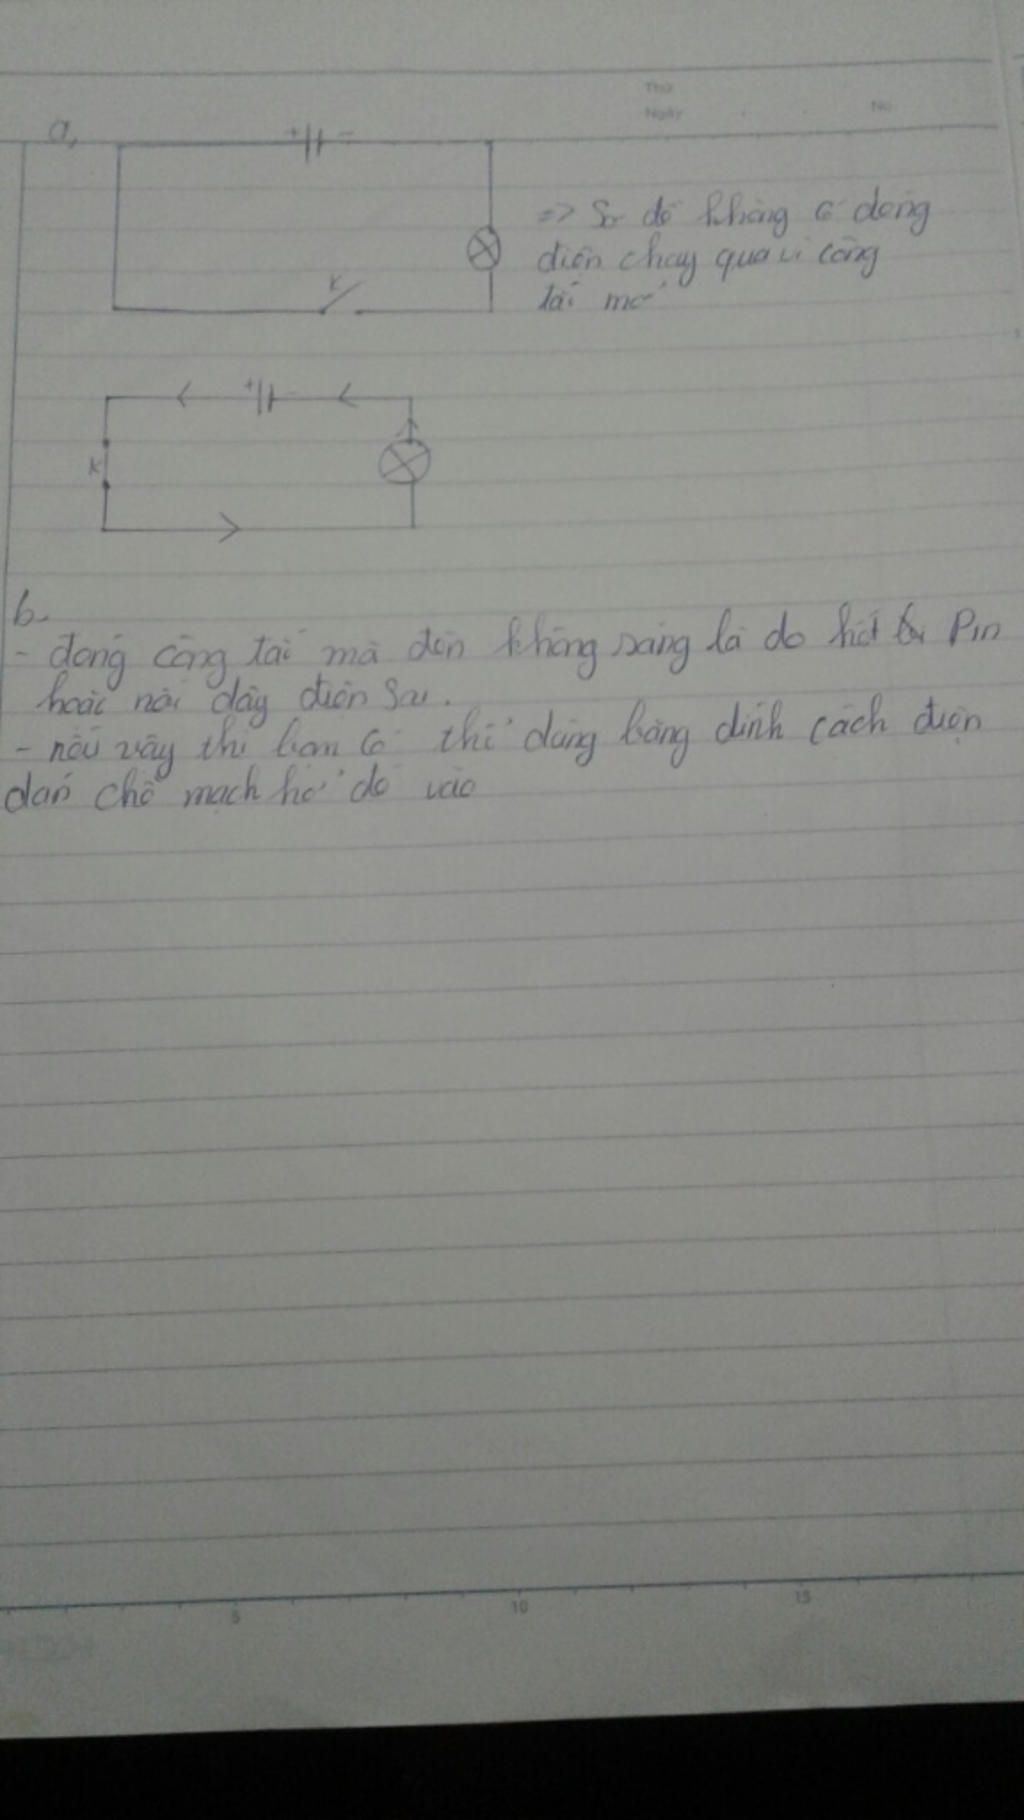 Thứ
Ngày No
a,
+ -
=> Sơ đồ không có dòng
điện chạy qua vì công
tắc mở
K
+ -
K
b.
- đóng công tắc mà đèn không sáng là do hết Pin
hoặc nối dây điện sai.
- nếu vậy thì bạn có thể dùng băng dính cách điện
dán chỗ mạch hở đó vào
5 10 15